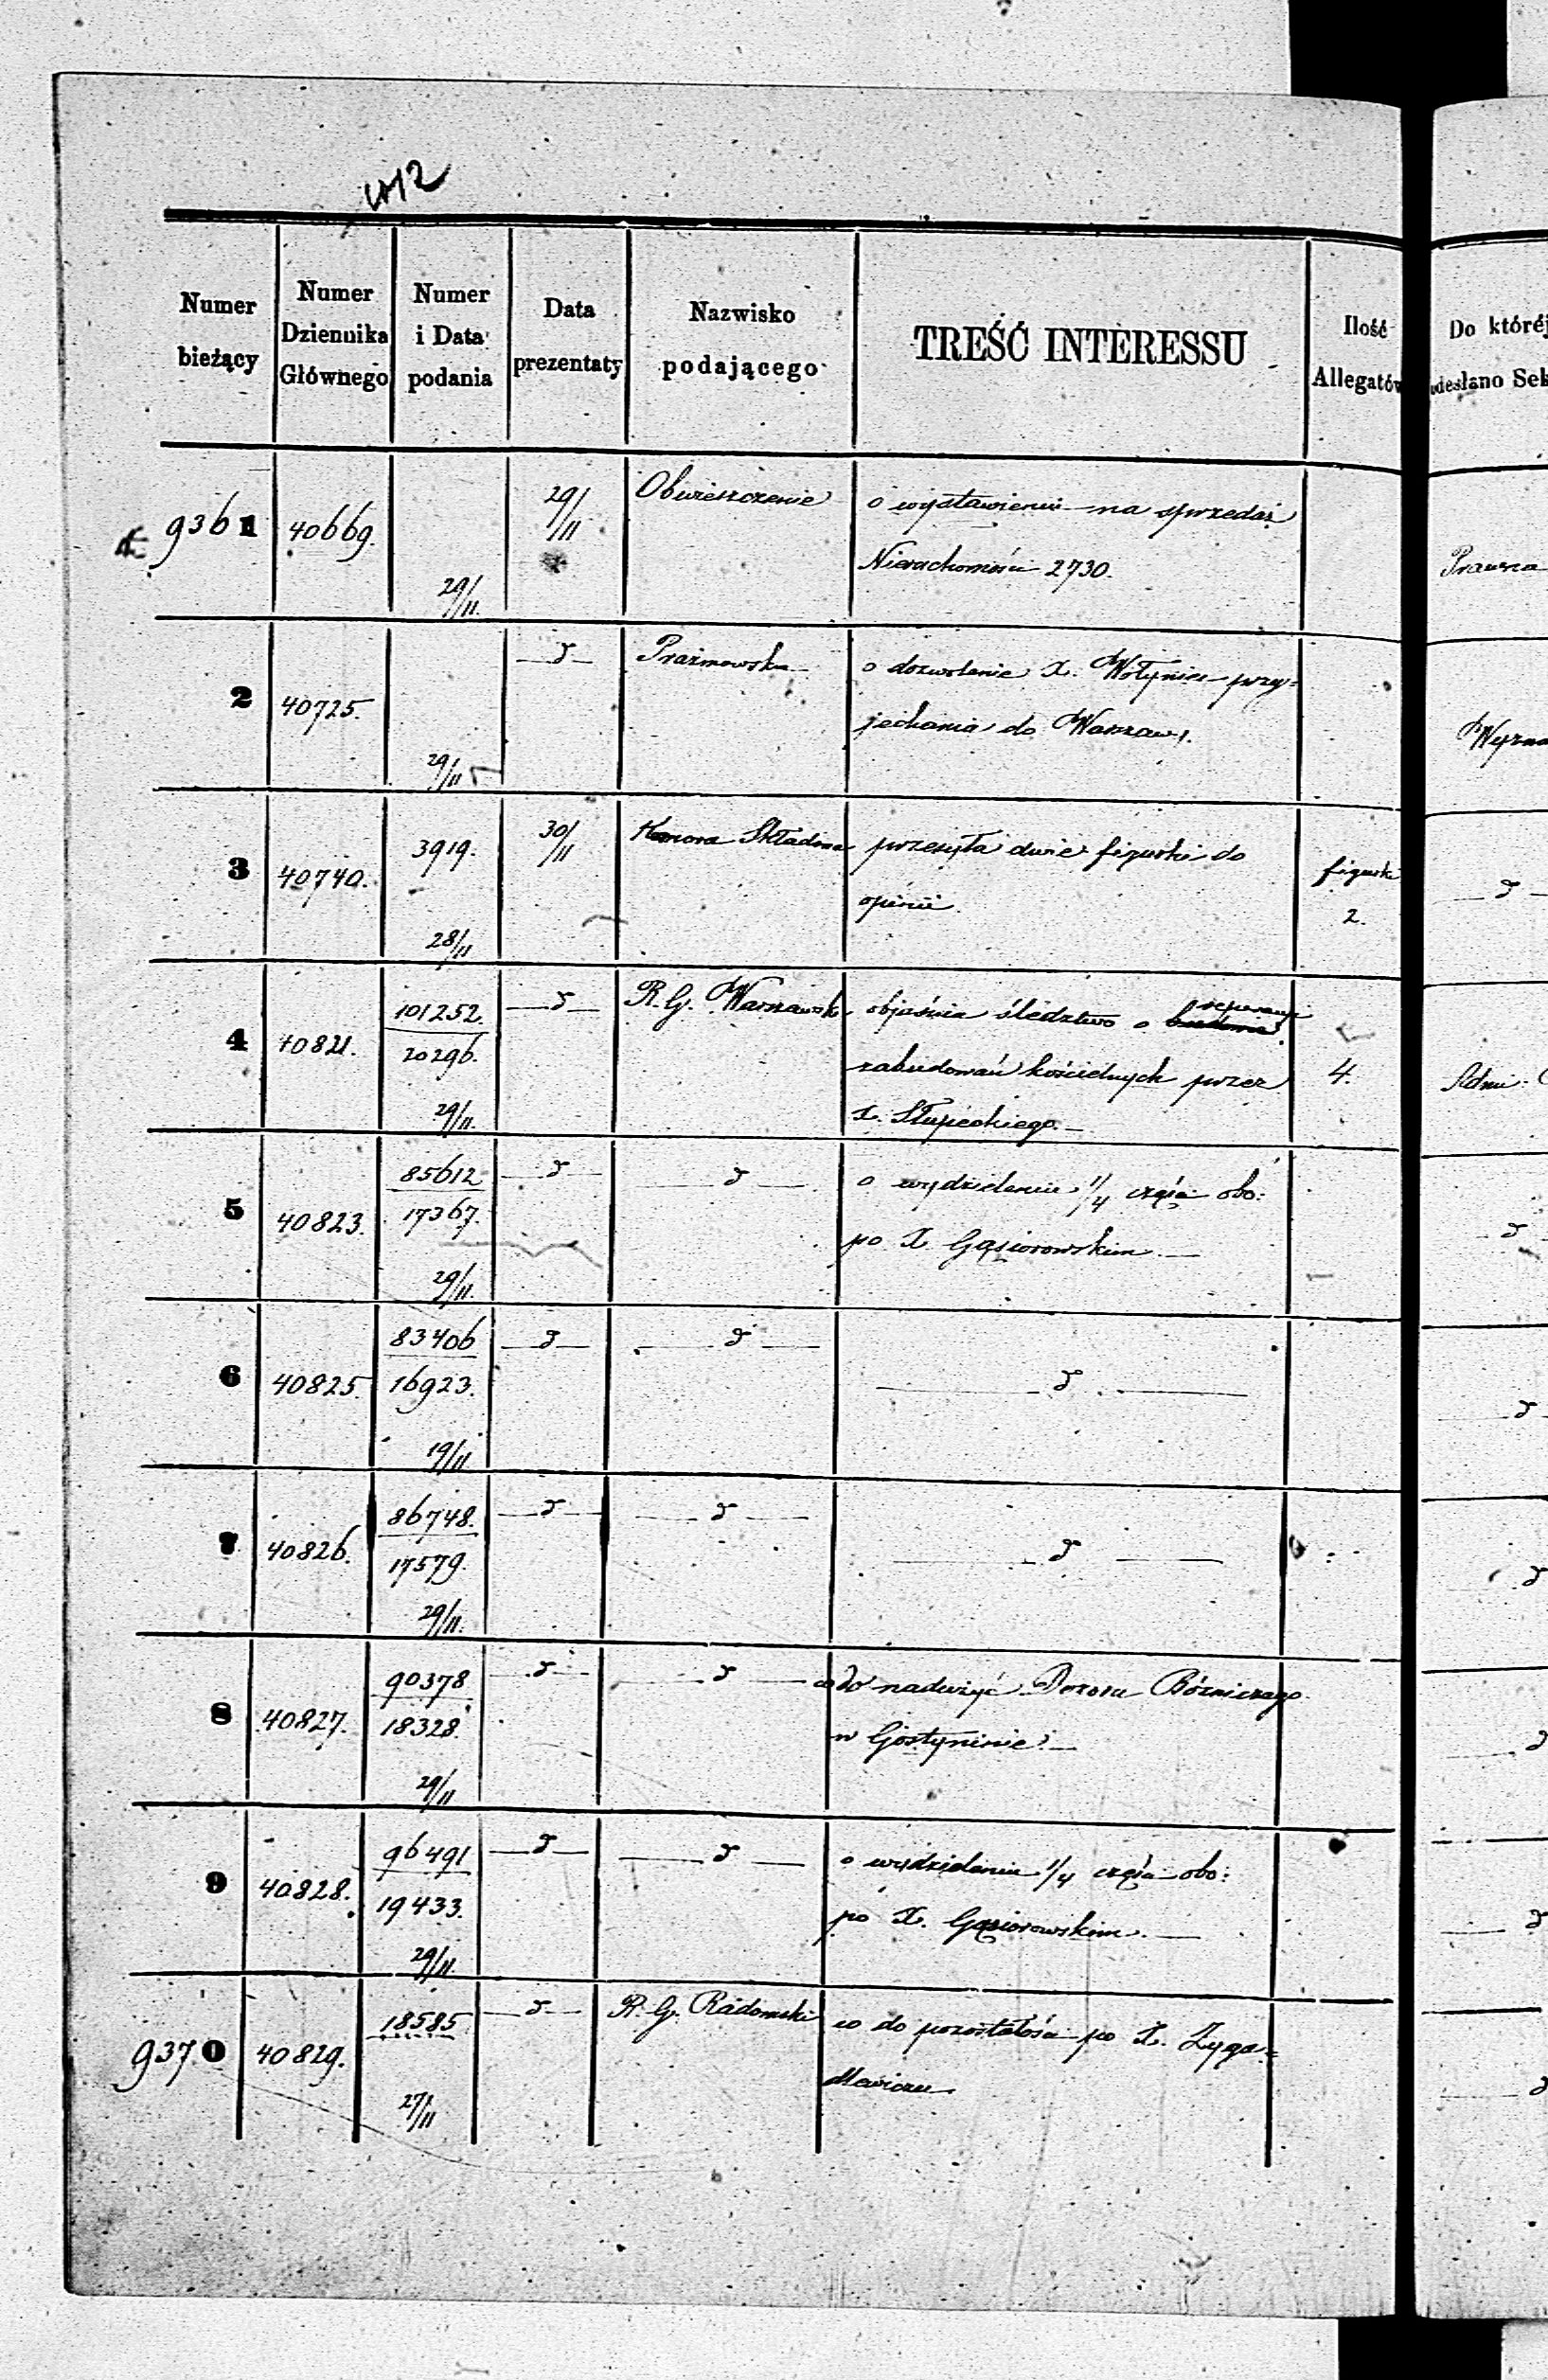 Numer bieżący
Numer Dziennika Głównego
Numer i Data podania
Data prezentaty
Nazwisko podającego
TREŚĆ INTERESSU
Ilość Allegatów
Do któréj
desłano Sek
9361 40669. 29/11. 29/11 Obwieszczenie o wystawieniu na sprzedaż
Nieruchomości 2730.
Prawna
2 40725. 29/11 d Prażmowska o dozwolenie X. Wołyniec przy=
jechania do Warszawy.
3 40740. 3919. 28/11 30/11 Komora Składowa przesyła dwie figurki do
opinii.
figurki
2.
d
4 40821. 101252. 20296. 29/11. d R. G. Warszawski objaśnia śledztwo o reperacyi
zabudowań kościelnych przez
X. Słupeckiego.
4.
Admi:
5 40823. 85612 17367. 29/11. d d o wydzielenie 1/4 części obo:
po X. Gąsiorowskim.
d
6 40825. 83406 16923. 19/11 d d d
d
7 40826. 86748. 17579. 29/11. d d d
d
8 40827. 90378 18328. 29/11 d d co do nadużyć Dozoru Bóżniczego
w Gostyninie.
d
9 40828. 96491 19433. 29/11. d d o wydzielenie 1/4 części obo:
po X. Gąsiorowskim.
d
9370 40829. 18585 27/11 d R. G. Radomski co do pozostałości po X. Zyga=
dlewiczu
d